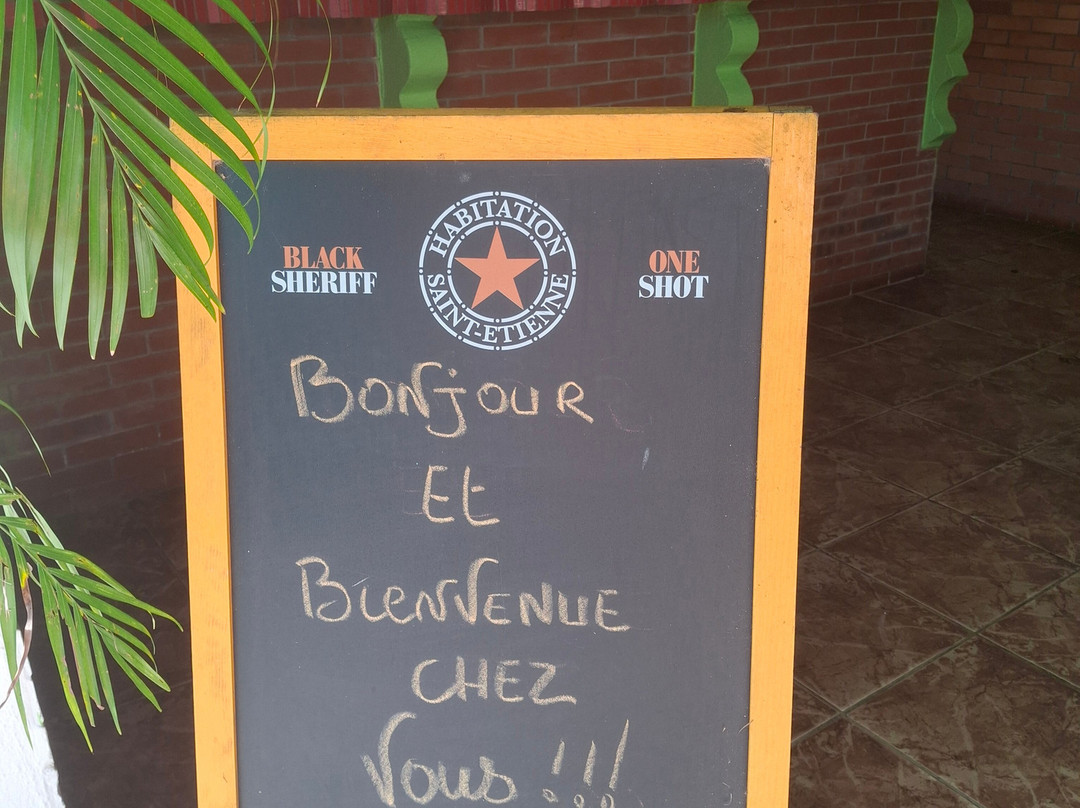 HABITATION
SAINT-ETIENNE
BLACK
SHERIFF
ONE
SHOT
BONJOUR
Et
BIENVENUE
CHEZ
Vous !!!